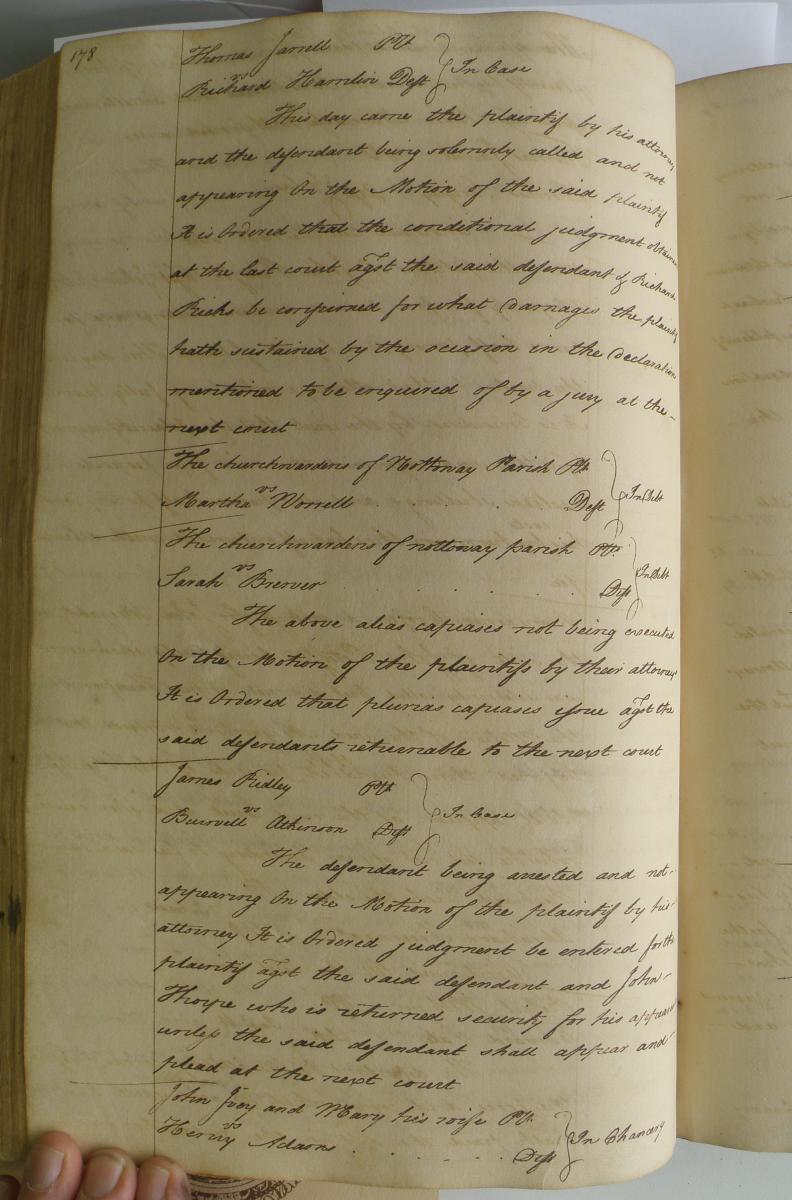 178
Thomas Jarrell Plt
vs
Richard Hamlin Deft } In Case
This day came the plaintif by his attorney
and the defendant being solemnly called and not
appearing On the Motion of the said plaintif
It is Ordered that the conditional judgment obtained
at the last court agst the said defendant & Richard
Ricks be confirmed for what Damages the plaintif
hath sustained by the occasion in the Declaration
mentioned to be enquired of by a jury at the
next court
The churchwardens of Nottoway Parish Plts
vs
Martha Worrell Deft } In Debt
The churchwardens of nottoway parish Plts
vs
Sarah Brewer Deft } In Debt
The above alias capiases not being executed
On the Motion of the plaintifs by their attorney
It is Ordered that plurias capiases issue agst the
said defendants returnable to the next court
James Ridley Plt
vs
Burwell Atkinson Deft } In Case
The defendant being arrested and not
appearing On the Motion of the plaintif by his
attorney It is Ordered judgment be entered for the
plaintif agst the said defendant and John
Thorpe who is returned security for his appear
unless the said defendant shall appear and
plead at the next court
John Ivey and Mary his wife Plt
vs
Henry Adams Deft } In Chancery